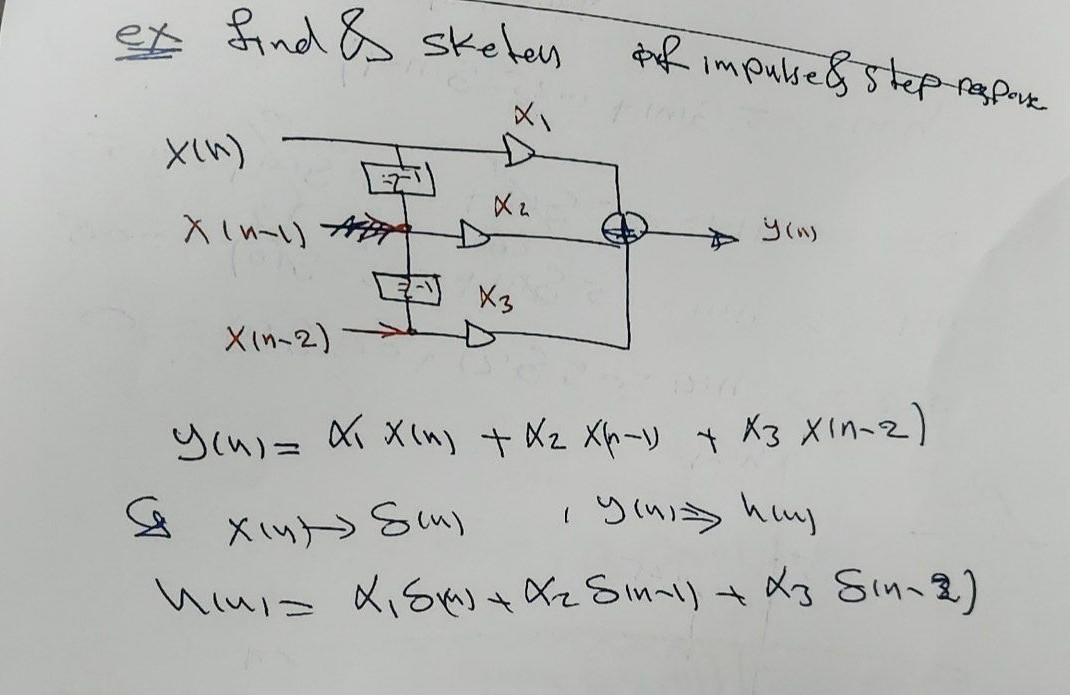 ex find & sketch of impulse & step response
α1
X(n)
z-1
α2
X(n-1)
y(n)
z-1
α3
X(n-2)
y(n) = α1 X(n) + α2 X(n-1) + α3 X(n-2)
X(n) → δ(n) , y(n) ⇒ h(n)
h(n) = α1 δ(n) + α2 δ(n-1) + α3 δ(n-2)